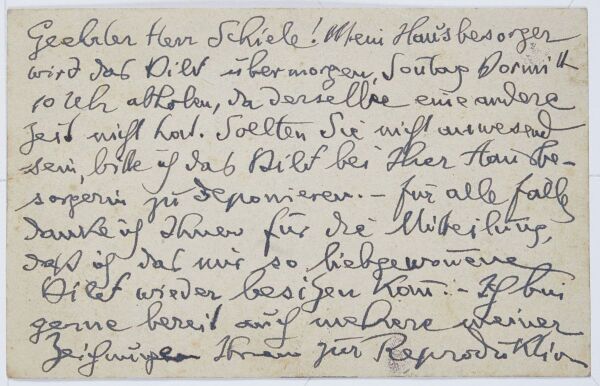 Geehrter Herr Schiele! Mein Hausbesorger
wird das Bild übermorgen, Sontag Vormitt
10 Uhr abholen, da derselbe eine andere
Zeit nicht hat. Sollten Sie nicht anwesend
sein, bitte ich das Bild bei Ihrer Hausbe-
sorgerin zu deponieren. – für alle Fälle
danke ich Ihnen für die Mitteilung,
daß ich das mir so liebgewonnene
Bild wieder besizen kann. – Ich bin
gerne bereit auch mehere meiner
Zeichnungen Ihnen zur Reproduktion